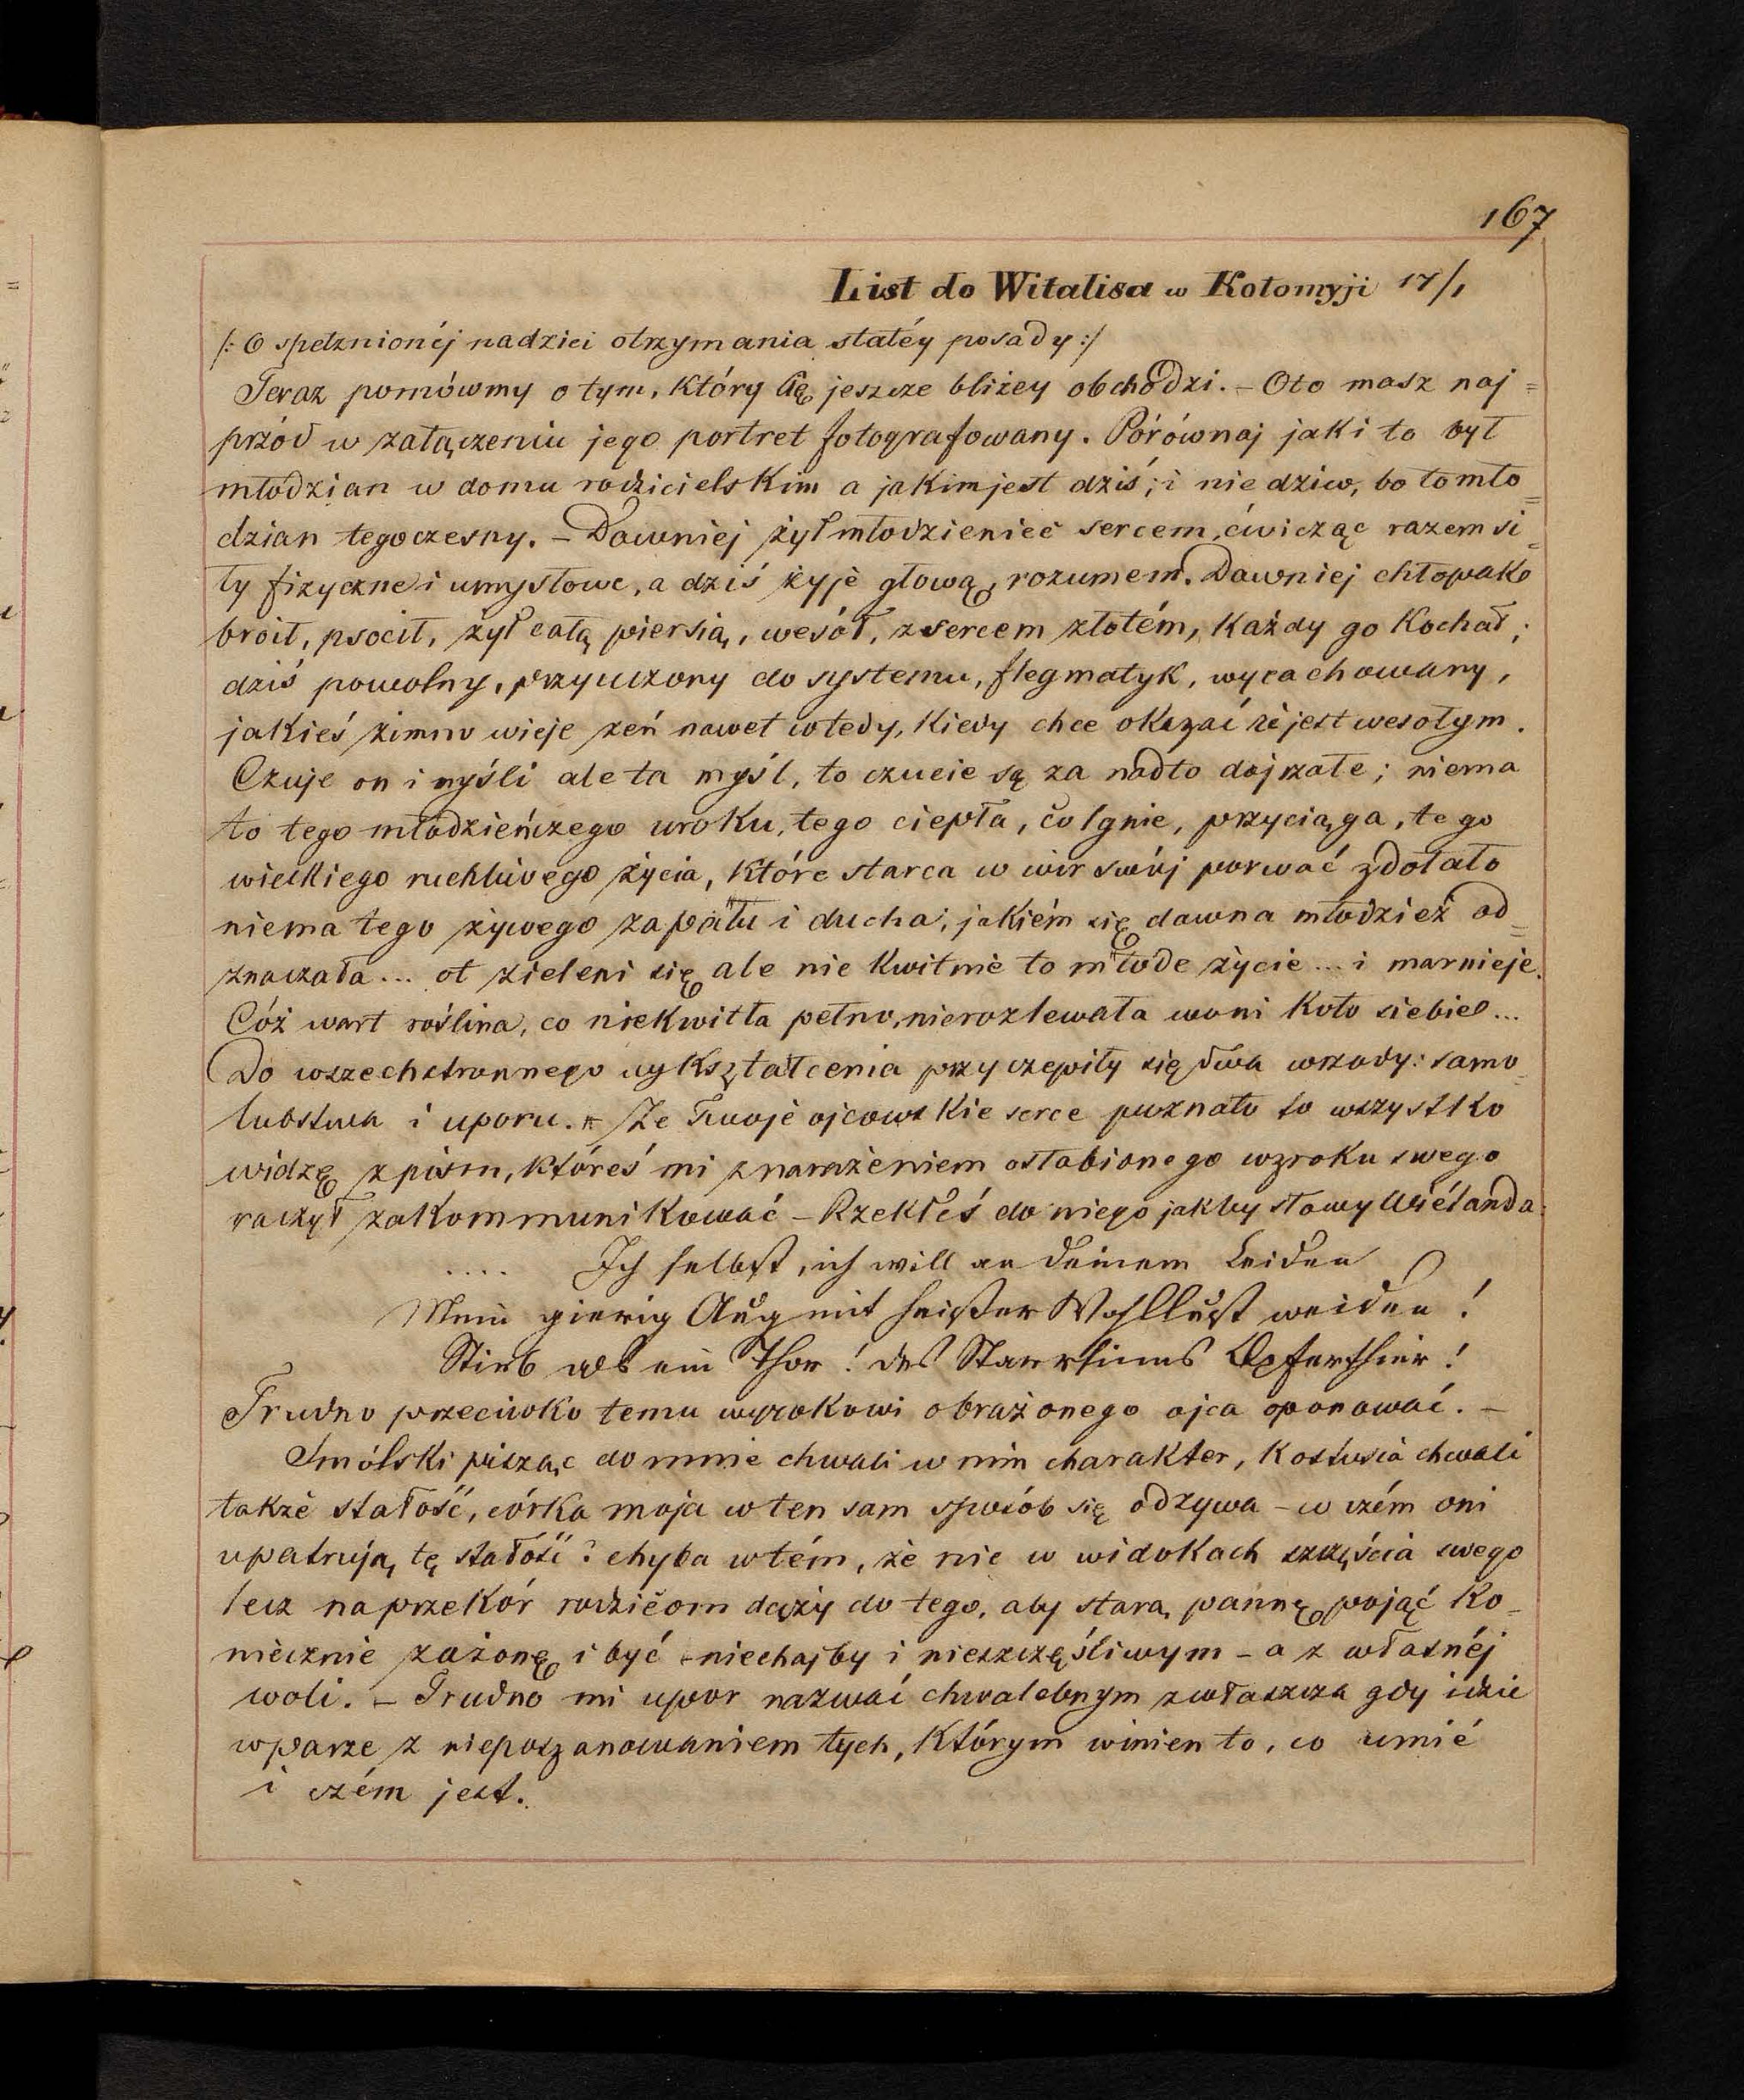 167
List do Witalisa w Kołomyji 17/1
/: O spełznionéj nadziei otrzymania stałéy posady :/
Teraz pomówmy o tym, który Cię jeszcze bliżey obchodzi. – Oto masz naj=
przód w załączeniu jego portret fotografowany. Porównaj jaki to był
młodzian w domu rodzicielskim a jakim jest dziś; i nie dziw, bo to mło=
dzian tegoczesny. – Dawniej żył młodzieniec sercem, ćwicząc razem si=
ły fizyczne i umysłowe, a dziś żyje głową, rozumem. Dawniej chłopak
broił, psocił, żył całą piersią, wesół, z sercem złotém, każdy go kochał;
dziś powolny, przyuczony do systemu, flegmatyk, wyrachowany,
jakieś zimno wieje zeń nawet wtedy, kiedy chce okazać że jest wesołym.
Czuje on i myśli ale ta myśl, to czucie są za nadto dojrzałe; niema
to tego młodzieńczego uroku, tego ciepła, co lgnie, przyciąga, tego
wielkiego ruchliwego życia, które starca w wir swój porwać zdołało
niema tego żywego zapału i ducha, jakiém się dawna młodzież od=
znaczała... ot zieleni się ale nie kwitnie to młode życie... i marnieje.
Cóż wart roślina, co niekwitła pełno, nierozlewała woni koło siebie...
Do wszechstronnego wykształcenia przyczepiły się dwa wrzody: samo=
lubstwa i uporu. – Że Twoje ojcowskie serce poznało to wszystko
widzę z pism, któreś mi z narażeniem osłabionego wzroku swego
raczył zakommunikować – Rzekłeś do niego jakby słowy Wiélanda:
.... Ich selbst, ich will an deinem Leiden
Mein gierig Aug mit heißer Wohllust weiden!
Stirb als ein Thor! des Starrsinns Opferthier!
Trudno przeciwko temu wyrokowi obrażonego ojca oponować. –
Smólski pisząc do mnie chwali w nim charakter, Kostusia chwali
także stałość, córka moja w ten sam sposób się odzywa – w czém oni
upatrują tę stałość? chyba w tém, że nie w widokach szczęścia swego
lecz na przekór rodzicom dąży do tego, aby starą pannę pojąć ko=
niecznie za żonę i być – niechajby i nieszczęśliwym – a z własnéj
woli. – Trudno mi upor nazwać chwalebnym zwłaszcza gdy idzie
w parze z nieposzanowaniem tych, którym winien to, co umié
i czém jest.